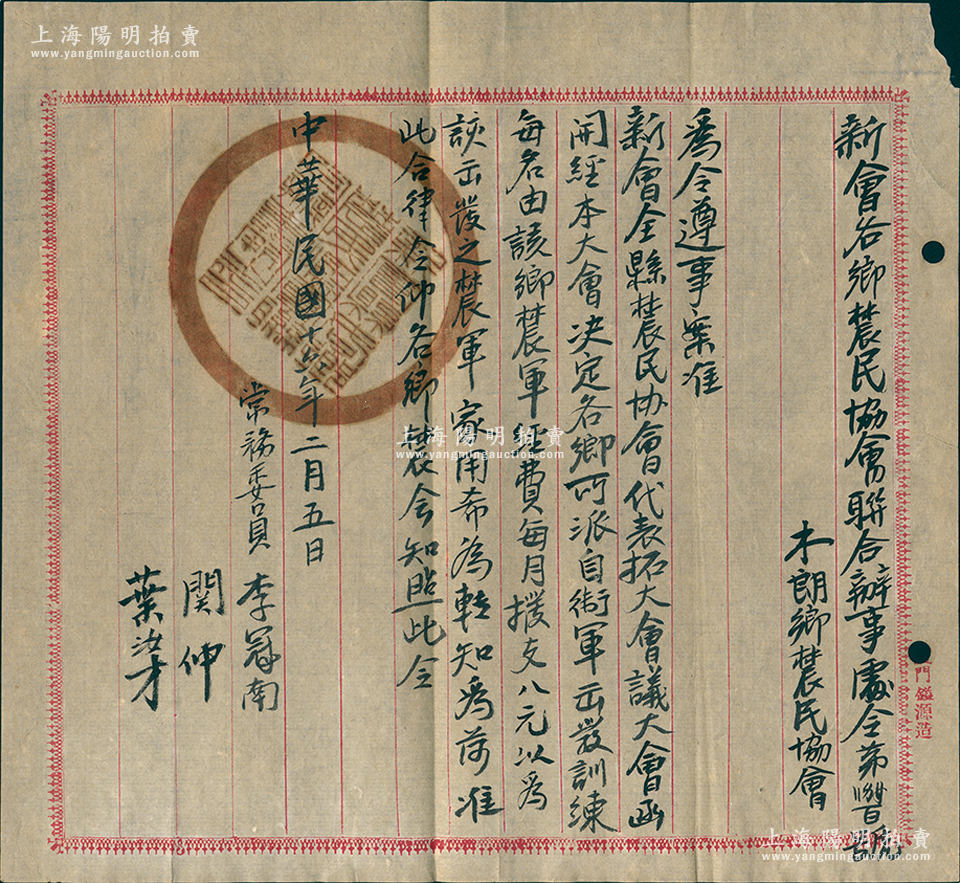 新會各鄉農民協會聯合辦事處令第 百 號
木朗鄉農民協會
為令遵事案准
新會全縣農民协會代表拓大會議大會函
開經本大會决定各鄉所派自衛軍出發訓練
每名由該鄉農軍經費每月撥支八元以為
該出發之農軍家用希為轉知為荷准
此合律令仰各鄉農会知照此令
中華民國十六年二月五日
常務委員 李冠南
関仲
葉汝才
門 鎰源造
上海陽明拍賣
www.yangmingauction.com
上海陽明拍賣
www.yangmingauction.com
上海陽明拍賣
www.yangmingauction.com